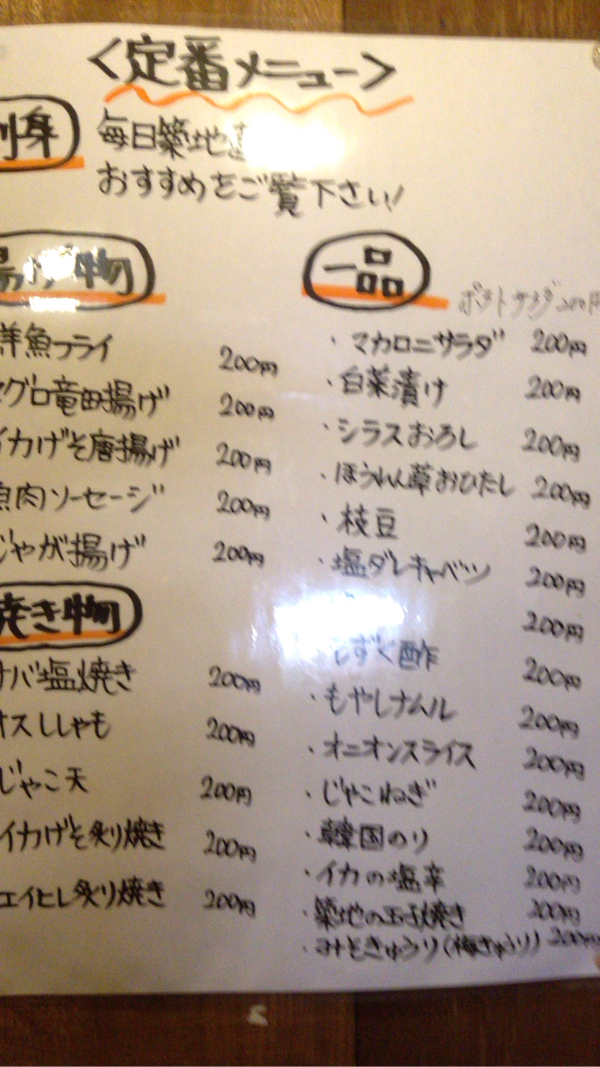 <定番メニュー>
刺身
毎日築地
おすすめをご覧下さい!
揚げ物
洋魚フライ 200円
マグロ竜田揚げ 200円
イカげそ唐揚げ 200円
魚肉ソーセージ 200円
じゃが揚げ 200円
焼き物
サバ塩焼き 200円
オスししゃも 200円
じゃこ天 200円
イカげそ炙り焼き 200円
エイヒレ炙り焼き 200円
一品
ポテトサラダ 200円
・マカロニサラダ 200円
・白菜漬け 200円
・シラスおろし 200円
・ほうれん草おひたし 200円
・枝豆 200円
・塩ダレキャベツ 200円
200円
もずく酢 200円
・もやしナムル 200円
・オニオンスライス 200円
・じゃこねぎ 200円
・韓国のり 200円
・イカの塩辛 200円
・築地の玉子焼き 200円
・みそきゅうり(梅きゅうり) 200円